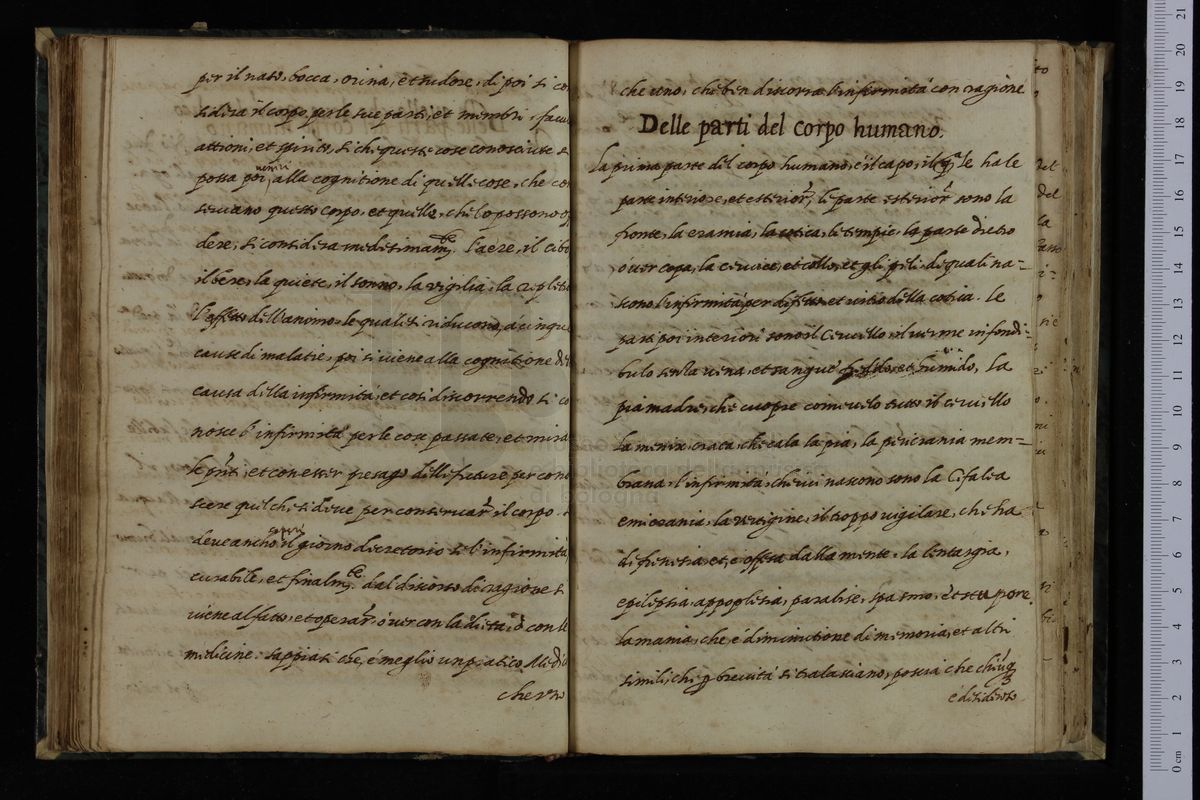 per il naso, bocca, orina, et sudore, di poi si co
sidera il corpo, per le sue parti, et membri, facu
attioni, et spirito, si che queste cose conosciute s
venire
possa poi, alla cognitione di quelle cose, che co
servano questo corpo, et quelle, che lo possono of
dere, si considera medesimam.te l'aere, il cibo
il bere, la quiete, il sonno, la vigilia, la repleti
l'affetto dell'animo, le quali si riducono, á cinque
cause di malatie, poi si viene alla cognitione del
causa della infirmitá, et cosi discorrendo si co
nosce l'infirmitá per le cose passate, et mira
le p̃nti, et con esser presago delle future per cono
scere quel che si deve per conservar̃ il corpo.
sapersi
deve ancho il giorno decretorio se l'infirmitá
curabile, et finalm.te dal discorso di ragione s
viene al fatto, et operar̃, ó ver con la dieta, ó con le
medicine. sappiasi che, é meglio un pratico Medi
che un
che uno, che ben discorra l'infirmitá con ragione
Delle parti del corpo humano.
La prima parte del corpo humano, é il capo, il q̃le ha le
parte interiore, et esterior̃, le parte esterior̃ sono la
fronte, la cramia, la cotica, le tempie, la parte dietro
ó ver copa, la cervice, et collo, et gli peli de quali na=
scono l'infirmitá per difetto, et vitio della cotica. Le
parte poi interiori sono il Cervello, il verme infondi=
bulo se la vena, et sangue freddo, et humido, La
pia madre, che cuopre come velo tutto il cervello
la menin craca, che cala la pia, la pericrania mem=
brana, l'infirmitá, che vi nascono sono la Cefalea
emicrania, la vertigine, il troppo vigilare, che ha
di frenesia, et, e offesa dalla mente, la lentargia,
epilepsia, appoplesia, paralise, spasmo, et stupore.
la mania, che é diminutione di memoria, et altri
simili, che p brevitá si tralasciano, poscia che chiúq
é desideroso